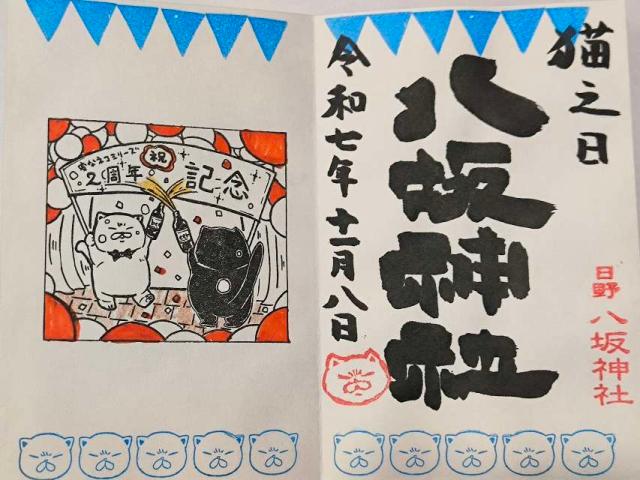 猫之日
八坂神社
令和七年十一月八日
日野
八坂神社
祝
2周年
記念